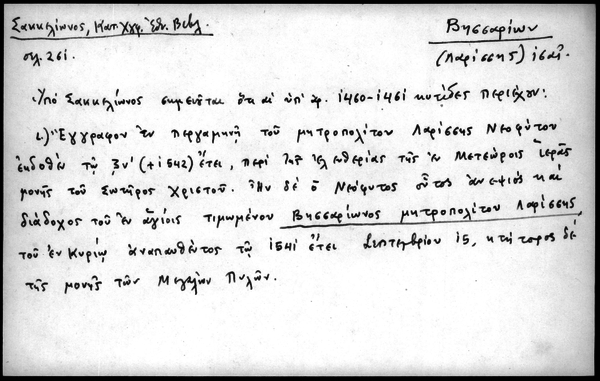 Σακκελίωνος, Κατ. Χγρ. Ἐθν. Βιβλ.
Βησσαρίων
σελ. 261.
(Λαρίσσης) ις αἰ.
Ὑπὸ Σακκελίωνος σημειοῦται ὅτι αἱ ὑπ' ἀρ. 1460-1461 κυτίδες περιέχουν:
1) Ἔγγραφον ἐν περγαμηνῇ τοῦ μητροπολίτου Λαρίσσης Νεοφύτου
ἐκδοθὲν τῷ ζν' (+1542) ἔτει, περὶ τῆς ἐλευθερίας τῆς ἐν Μετεώροις ἱερᾶς
μονῆς τοῦ Σωτῆρος Χριστοῦ. Ἦν δὲ ὁ Νεόφυτος οὗτος ἀνεψιός καὶ
διάδοχος τοῦ ἐν ἁγίοις τιμωμένου Βησσαρίωνος μητροπολίτου Λαρίσσης,
τοῦ ἐν Κυρίῳ ἀναπαυθέντος τῷ 1541 ἔτει Σεπτεμβρίου 15, κτήτορος δὲ
τῆς μονῆς τῶν Μεγάλων Πυλῶν.